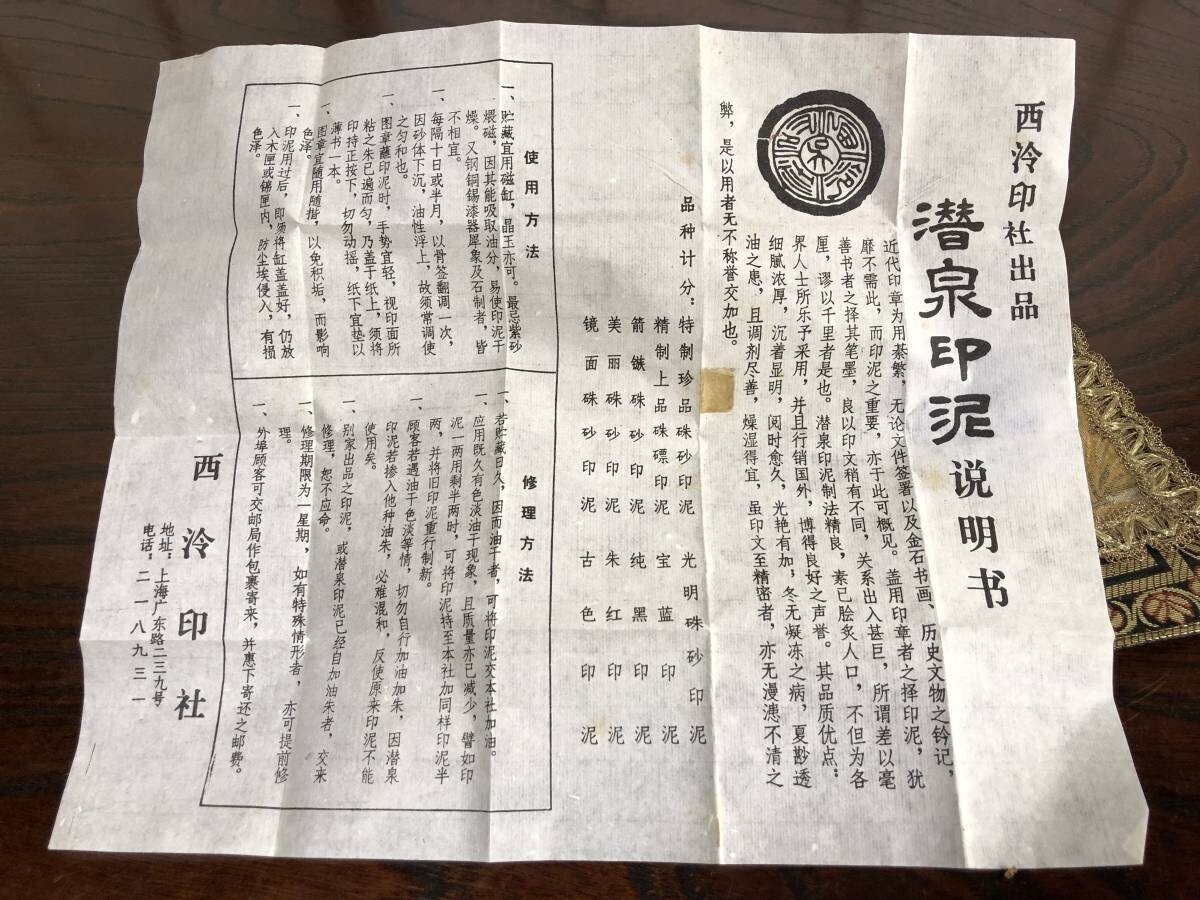 西泠印社出品
潜泉印泥说明书
近代印章为用綦繁，无论文件签署以及金石书画、历史文物之钤记，
靡不需此，而印泥之重要，亦于此可概见。盖用印章者之择印泥，犹
善书者之择其笔墨，良以印文稍有不同，关系出入甚巨，所谓差以毫
厘，谬以千里者是也。潜泉印泥制法精良，素已脍炙人口，不但为各
界人士所乐予采用，并且行销国外，博得良好之声誉。其品质优点：
细腻浓厚，沉着显明，阅时愈久，光艳有加，冬无疑冻之病，夏尠透
油之患，且调剂尽善，燥湿得宜，虽印文至精密者，亦无漫漶不清之
弊，是以用者无不称誉交加也。
品种计分：
特制珍品硃砂印泥 光明硃砂印泥
精制上品硃磦印泥 宝蓝印泥
箭镞硃砂印泥 纯黑印泥
美丽硃砂印泥 朱红印泥
镜面硃砂印泥 古色印泥
使用方法
一、贮藏宜用磁缸，晶玉亦可。最忌紫砂
煨磁，因其能吸取油分，易使印泥干
燥。又钢铜锡漆器犀象及石制者，皆
不相宜。
一、每隔十日或半月，以骨签翻调一次，
因砂体下沉，油性浮上，故须常调使
之匀和也。
一、图章蘸印泥时，手势宜轻，视印面所
粘之朱已遍而匀，乃盖于纸上，须将
印持正按下，切勿动摇，纸下宜垫以
薄书一本。
一、图章宜随用随揩，以免积垢，而影响
色泽。
一、印泥用过后，即须将缸盖盖好，仍放
入木匣或锦匣内，防尘埃侵入，有损
色泽。
修理方法
一、若贮藏日久，因而油干者，可将印泥交本社加油。
一、应用既久有色淡油干现象，且质量亦已减少，譬如印
泥一两用剩半两时，可将印泥持至本社加同样印泥半
两，并将旧印泥重行制新。
一、顾客若遇油干色淡等情，切勿自行加油加朱，因潜泉
印泥若掺入他种油朱，必难混和，反使原来印泥不能
使用矣。
一、别家出品之印泥，或潜泉印泥已经自加油朱者，交来
修理，恕不应命。
一、修理期限为一星期，如有特殊情形者，亦可提前修
理。
一、外埠顾客可交邮局作包裹寄来，并惠下寄还之邮费。
西泠印社
地址：上海广东路二三九号
电话：二一八九三一